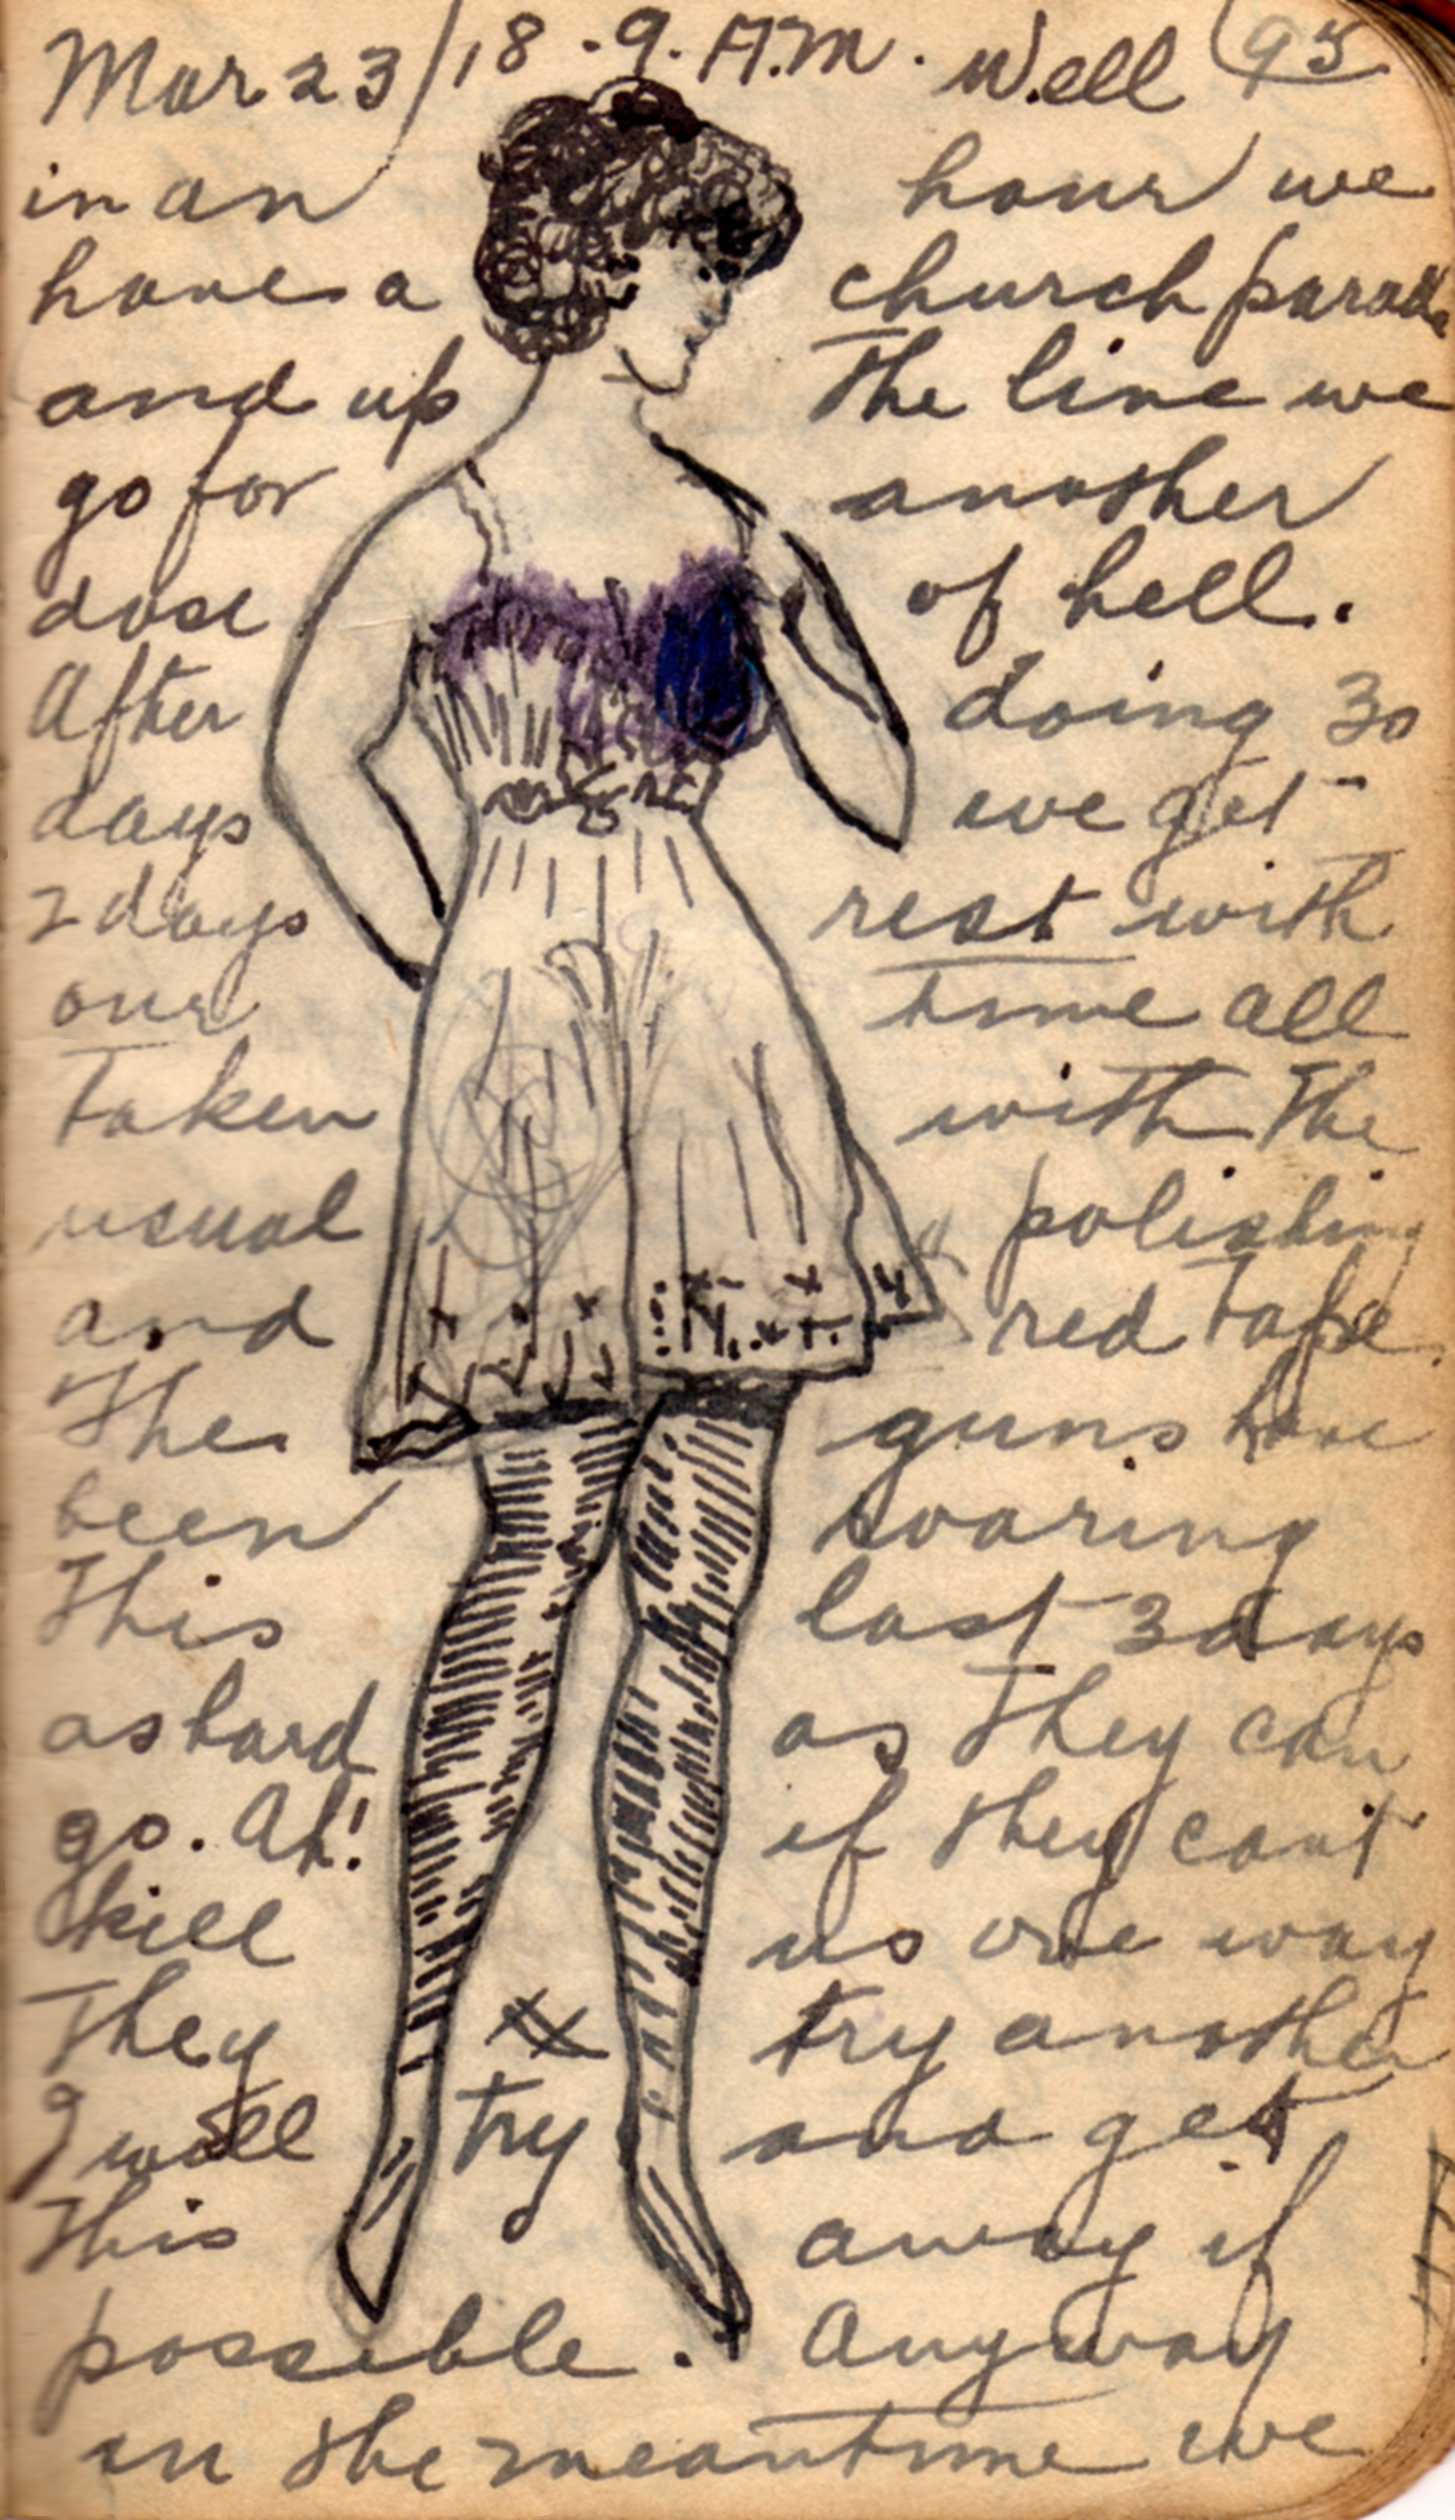 Mar 23/18 - 9. A.M. Well 95
in an hour we
have a church parade
and up the line we
go for another
dose of hell.
After doing 30
days we get
2 days rest with
our time all
taken with the
usual polishing
and red tape.
The guns have
been roaring
this last 3 days
as hard as they can
go. Ah! if they cant
kill us one way
they try another
I will try and get
this away if
possible. Anyway
in the meantime we